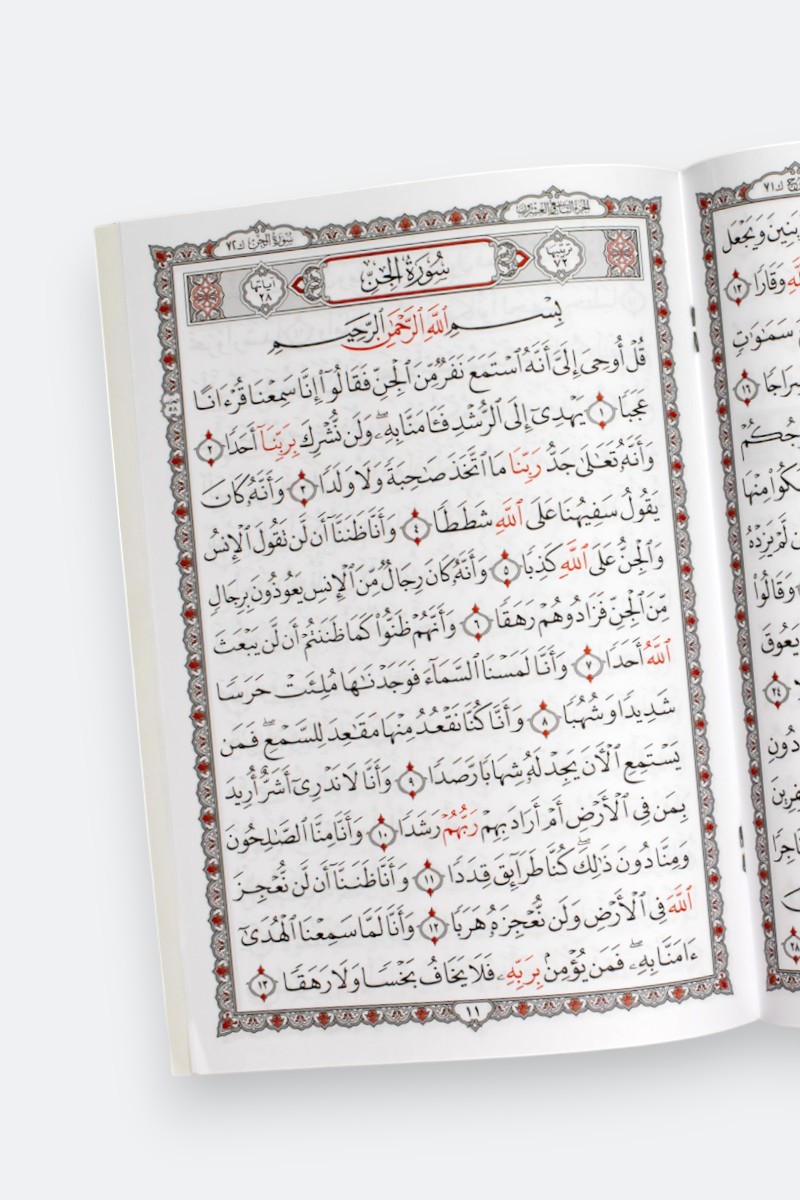 ك ٧١
وَيَجْعَل
وَقَارًا ١٣
سَمَٰوَٰتٍ
١٦
مِنْهَا
لَّمْ يَزِدْهُ
وَقَالُوا۟
٢٤
٢٨
الجزء التاسع والعشرون
سُورَةُ الجِنّ ك ٧٢
ترتيبها ٧٢
سُورَةُ الجِنِّ
آياتها ٢٨
بِسْمِ ٱللَّهِ ٱلرَّحْمَٰنِ ٱلرَّحِيمِ
قُلْ أُوحِىَ إِلَىَّ أَنَّهُ ٱسْتَمَعَ نَفَرٌ مِّنَ ٱلْجِنِّ فَقَالُوٓا۟ إِنَّا سَمِعْنَا قُرْءَانًا
عَجَبًا ١ يَهْدِىٓ إِلَى ٱلرُّشْدِ فَـَٔامَنَّا بِهِۦۖ وَلَن نُّشْرِكَ بِرَبِّنَآ أَحَدًا ٢
وَأَنَّهُۥ تَعَٰلَىٰ جَدُّ رَبِّنَا مَا ٱتَّخَذَ صَٰحِبَةً وَلَا وَلَدًا ٣ وَأَنَّهُۥ كَانَ
يَقُولُ سَفِيهُنَا عَلَى ٱللَّهِ شَطَطًا ٤ وَأَنَّا ظَنَنَّآ أَن لَّن تَقُولَ ٱلْإِنسُ
وَٱلْجِنُّ عَلَى ٱللَّهِ كَذِبًا ٥ وَأَنَّهُۥ كَانَ رِجَالٌ مِّنَ ٱلْإِنسِ يَعُوذُونَ بِرِجَالٍ
مِّنَ ٱلْجِنِّ فَزَادُوهُمْ رَهَقًا ٦ وَأَنَّهُمْ ظَنُّوا۟ كَمَا ظَنَنتُمْ أَن لَّن يَبْعَثَ
ٱللَّهُ أَحَدًا ٧ وَأَنَّا لَمَسْنَا ٱلسَّمَآءَ فَوَجَدْنَٰهَا مُلِئَتْ حَرَسًا
شَدِيدًا وَشُهُبًا ٨ وَأَنَّا كُنَّا نَقْعُدُ مِنْهَا مَقَٰعِدَ لِلسَّمْعِۖ فَمَن
يَسْتَمِعِ ٱلْـَٔانَ يَجِدْ لَهُۥ شِهَابًا رَّصَدًا ٩ وَأَنَّا لَا نَدْرِىٓ أَشَرٌّ أُرِيدَ
بِمَن فِى ٱلْأَرْضِ أَمْ أَرَادَ بِهِمْ رَبُّهُمْ رَشَدًا ١٠ وَأَنَّا مِنَّا ٱلصَّٰلِحُونَ
وَمِنَّا دُونَ ذَٰلِكَۖ كُنَّا طَرَآئِقَ قِدَدًا ١١ وَأَنَّا ظَنَنَّآ أَن لَّن نُّعْجِزَ
ٱللَّهَ فِى ٱلْأَرْضِ وَلَن نُّعْجِزَهُۥ هَرَبًا ١٢ وَأَنَّا لَمَّا سَمِعْنَا ٱلْهُدَىٰٓ
ءَامَنَّا بِهِۦۖ فَمَن يُؤْمِنۢ بِرَبِّهِۦ فَلَا يَخَافُ بَخْسًا وَلَا رَهَقًا ١٣
١١